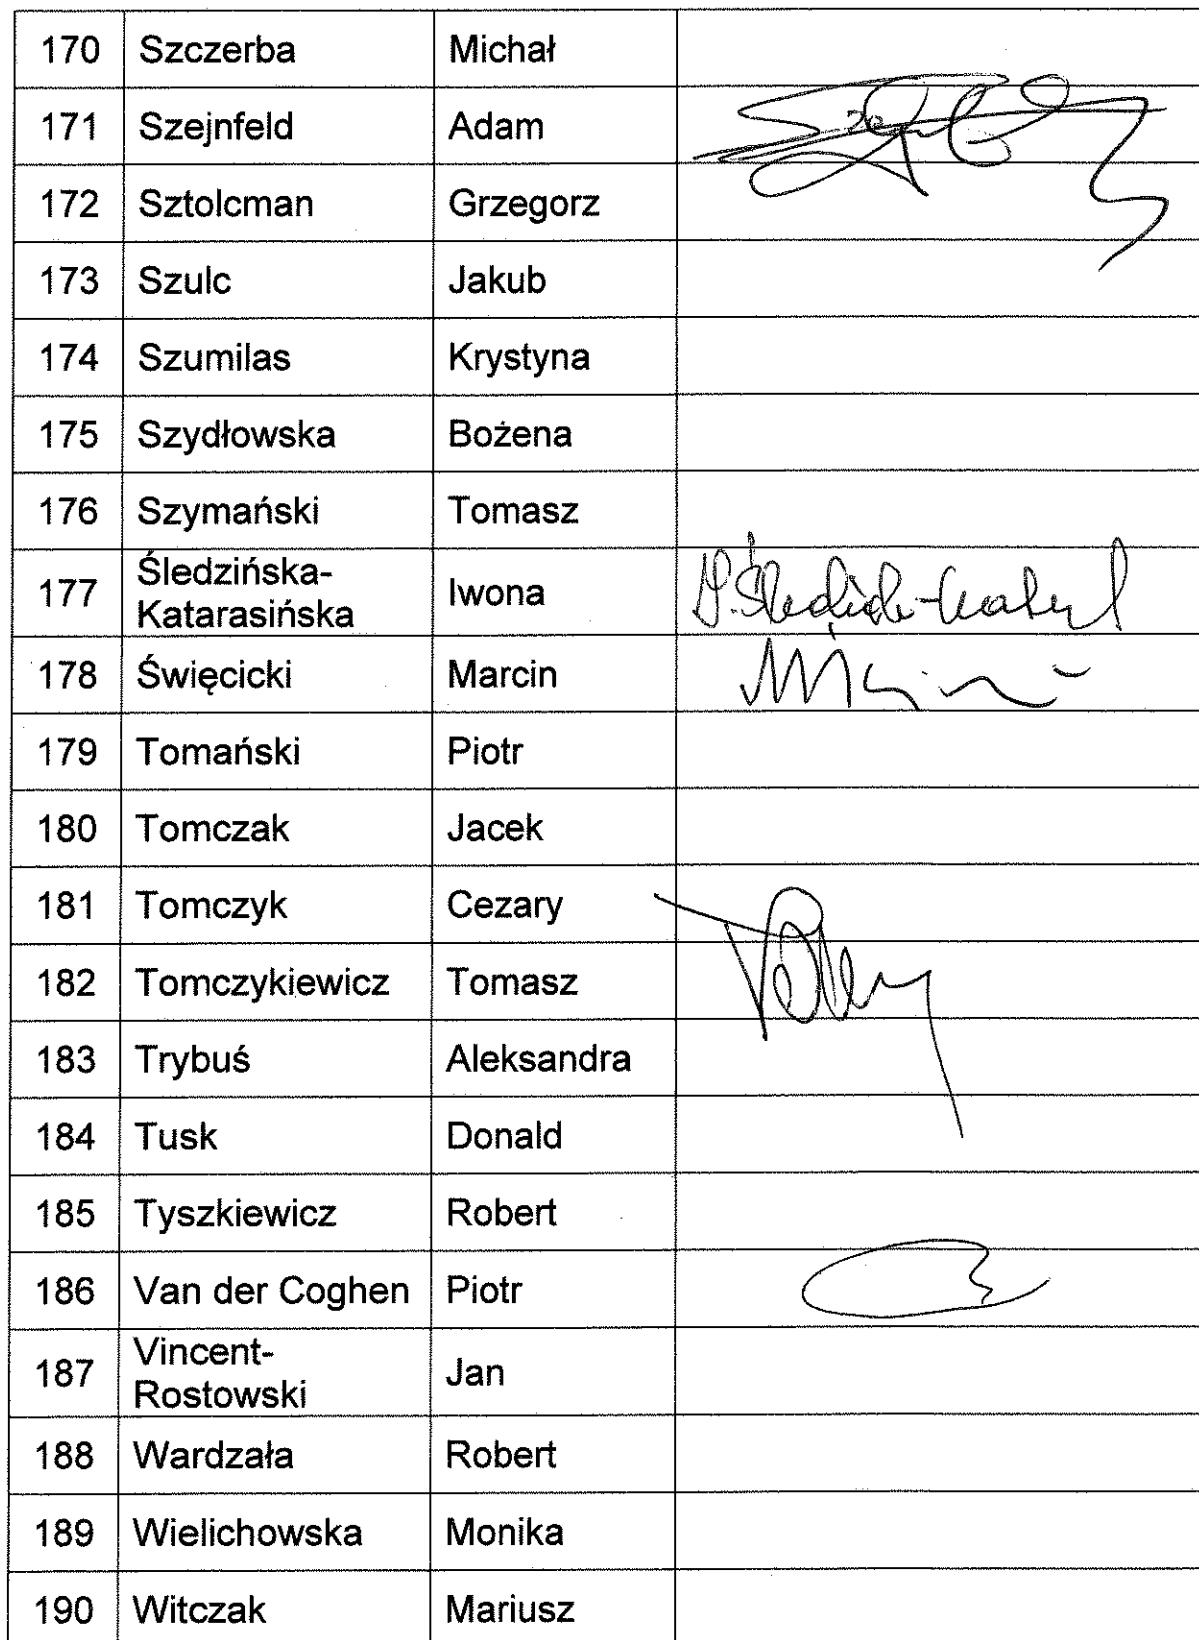 170 Szczerba Michał
171 Szejnfeld Adam
172 Sztolcman Grzegorz
173 Szulc Jakub
174 Szumilas Krystyna
175 Szydłowska Bożena
176 Szymański Tomasz
177 Śledzińska-
Katarasińska Iwona
178 Święcicki Marcin
179 Tomański Piotr
180 Tomczak Jacek
181 Tomczyk Cezary
182 Tomczykiewicz Tomasz
183 Trybuś Aleksandra
184 Tusk Donald
185 Tyszkiewicz Robert
186 Van der Coghen Piotr
187 Vincent-
Rostowski Jan
188 Wardzała Robert
189 Wielichowska Monika
190 Witczak Mariusz